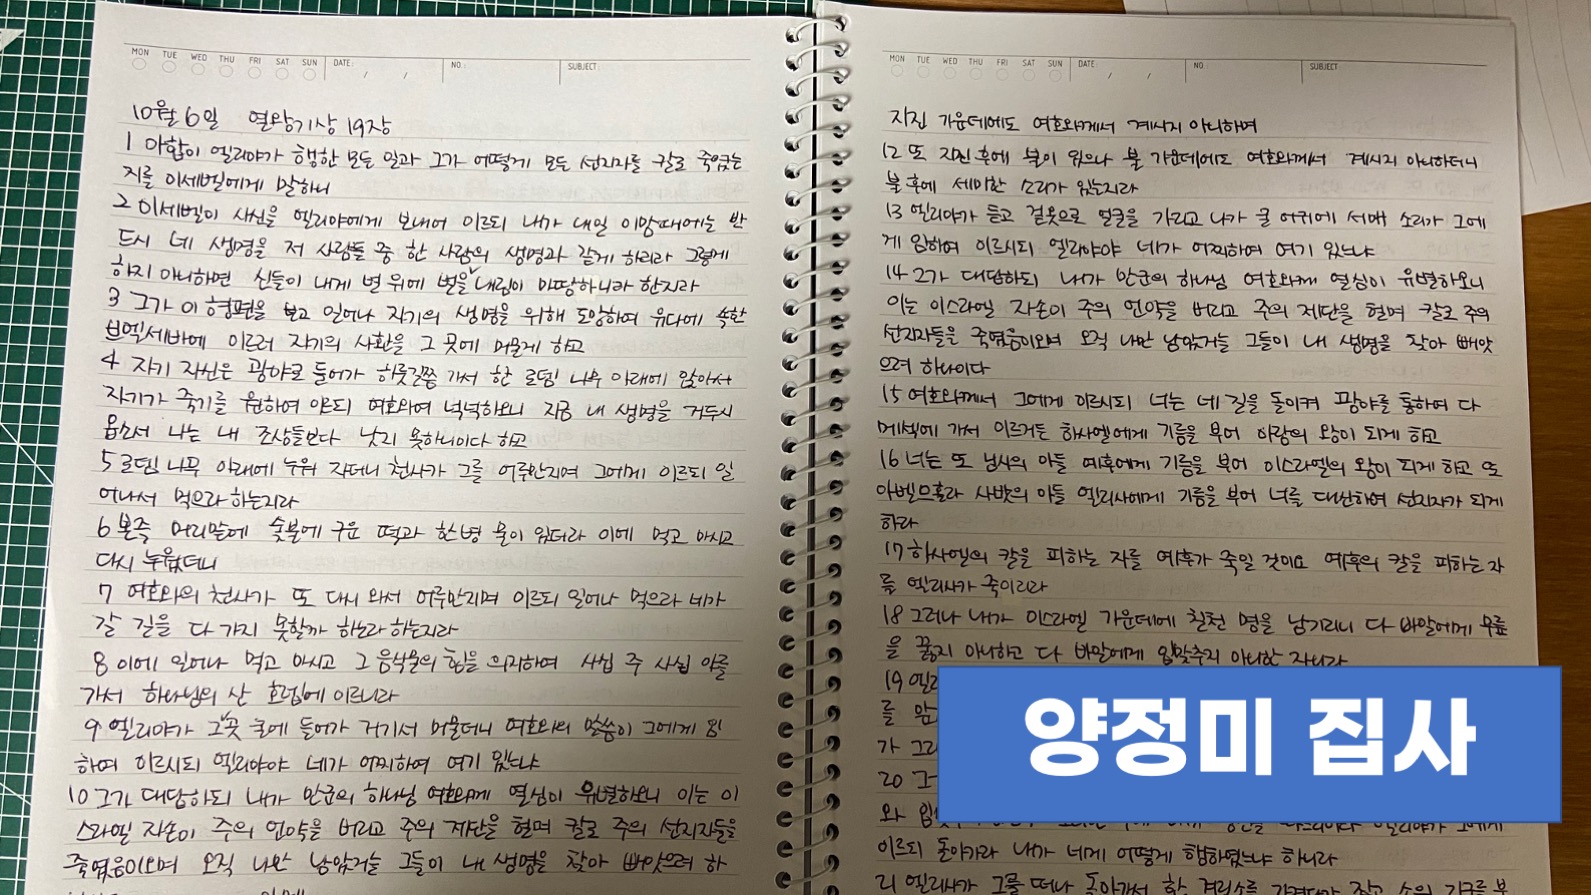 MON TUE WED THU FRI SAT SUN DATE: / / NO.: SUBJECT:
10월 6일 열왕기상 19장
1 아합이 엘리야가 행한 모든 일과 그가 어떻게 모든 선지자를 칼로 죽였는
지를 이세벨에게 말하니
2 이세벨이 사신을 엘리야에게 보내어 이르되 내가 내일 이맘때에는 반
드시 네 생명을 저 사람들 중 한 사람의 생명과 같게 하리라 그렇게
하지 아니하면 신들이 내게 벌 위에 벌을 내림이 마땅하니라 한지라
3 그가 이 형편을 보고 일어나 자기의 생명을 위해 도망하여 유다에 속한
브엘세바에 이르러 자기의 사환을 그 곳에 머물게 하고
4 자기 자신은 광야로 들어가 하룻길쯤 가서 한 로뎀 나무 아래에 앉아서
자기가 죽기를 원하여 이르되 여호와여 넉넉하오니 지금 내 생명을 거두시
옵소서 나는 내 조상들보다 낫지 못하니이다 하고
5 로뎀 나무 아래에 누워 자더니 천사가 그를 어루만지며 그에게 이르되 일
어나서 먹으라 하는지라
6 본즉 머리맡에 숯불에 구운 떡과 한 병 물이 있더라 이에 먹고 마시고
다시 누웠더니
7 여호와의 천사가 또 다시 와서 어루만지며 이르되 일어나 먹으라 네가
갈 길을 다 가지 못할까 하노라 하는지라
8 이에 일어나 먹고 마시고 그 음식물의 힘을 의지하여 사십 주 사십 야를
가서 하나님의 산 호렙에 이르니라
9 엘리야가 그 곳 굴에 들어가 거기서 머물더니 여호와의 말씀이 그에게 임
하여 이르시되 엘리야야 네가 어찌하여 여기 있느냐
10 그가 대답하되 내가 만군의 하나님 여호와께 열심이 유별하오니 이는 이
스라엘 자손이 주의 언약을 버리고 주의 제단을 헐며 칼로 주의 선지자들을
죽였음이오며 오직 나만 남았거늘 그들이 내 생명을 찾아 빼앗으려 하
MON TUE WED THU FRI SAT SUN DATE: / / NO. SUBJECT:
지진 가운데에도 여호와께서 계시지 아니하며
12 또 지진 후에 불이 있으나 불 가운데에도 여호와께서 계시지 아니하더니
불 후에 세미한 소리가 있는지라
13 엘리야가 듣고 겉옷으로 얼굴을 가리고 나가 굴 어귀에 서매 소리가 그에
게 임하여 이르시되 엘리야야 네가 어찌하여 여기 있느냐
14 그가 대답하되 내가 만군의 하나님 여호와께 열심이 유별하오니
이는 이스라엘 자손이 주의 언약을 버리고 주의 제단을 헐며 칼로 주의
선지자들을 죽였음이오며 오직 나만 남았거늘 그들이 내 생명을 찾아 빼앗
으려 하나이다
15 여호와께서 그에게 이르시되 너는 네 길을 돌이켜 광야를 통하여 다
메섹에 가서 이르거든 하사엘에게 기름을 부어 아람의 왕이 되게 하고
16 너는 또 님시의 아들 예후에게 기름을 부어 이스라엘의 왕이 되게 하고 또
아벨므홀라 사밧의 아들 엘리사에게 기름을 부어 너를 대신하여 선지자가 되게
하라
17 하사엘의 칼을 피하는 자를 예후가 죽일 것이요 예후의 칼을 피하는 자
를 엘리사가 죽이리라
18 그러나 내가 이스라엘 가운데에 칠천 명을 남기리니 다 바알에게 무릎
을 꿇지 아니하고 다 바알에게 입맞추지 아니한 자니라
19 엘
를 앞
가 그
20 그
와
이르되 돌아가라 내가 네게 어떻게 행하였느냐 하니라
21 엘리사가 그를 떠나 돌아가서 한
양정미 집사